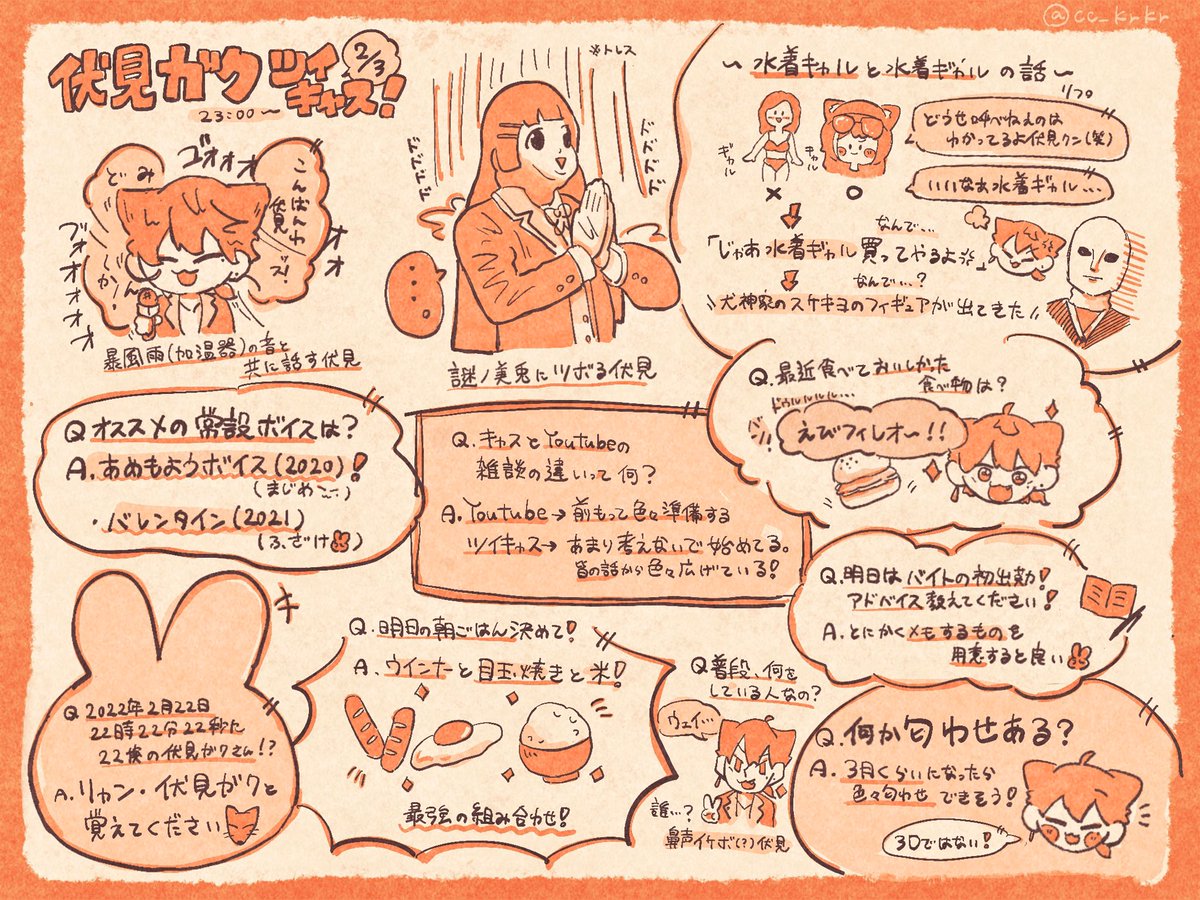 @cc_krkr
伏見ガク ツイキャス!
2/3
23:00〜
ゴォォォ
こんばんわ
伏見
ッス!
どみ
かん
ブォォォォォ
オオオ
暴風雨(加湿器)の音と
共に話す伏見
※トレス
ドドドド
謎ノ美兎にツボる伏見
〜水着キャルと水着ギャルの話〜
リプ
どうせ呼べねえのは
わかってるよ伏見クン(笑)
いいなぁ水着ギャル...
ギャル
キャル
×
○
なんで...
「じゃあ水着ギャル買ってやるよ」
なんで...?
\\犬神家のスケキヨのフィギュアが出てきた//
Q オススメの常設ボイスは?
A. あめもようボイス(2020)!
(まじめ)
・バレンタイン(2021)
(ふざけ)
Q. キャスとYoutubeの
雑談の違いって何?
A. Youtube→前もって色々準備する
ツイキャス→あまり考えないで始めてる。
皆の話から色々広げている!
Q. 最近食べておいしかった
食べ物は?
ドゥルルルル...
えびフィレオ〜!!
Q. 明日はバイトの初出勤!
アドバイス教えてください!
A. とにかくメモするものを
用意すると良い
Q 2022年2月22日
22時22分22秒に
22歳の伏見ガクさん!?
A. リャン・伏見ガクと
覚えてください
Q. 明日の朝ごはん決めて!
A. ウインナーと目玉焼きと米!
最強の組み合わせ!
Q 普段、何を
している人なの?
ウェイ...
誰...?
鼻声イケボ(?)伏見
Q. 何か匂わせある?
A. 3月くらいになったら
色々匂わせできそう!
3Dではない!